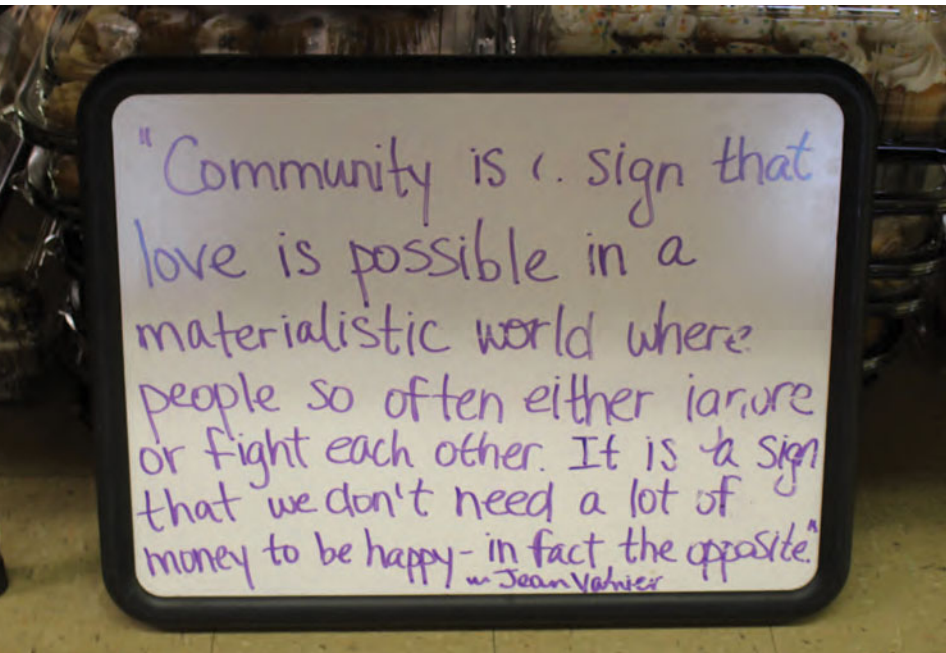 "Community is a sign that
love is possible in a
materialistic world where
people so often either ignore
or fight each other. It is a sign
that we don't need a lot of
money to be happy - in fact the opposite."
~ Jean Vanier